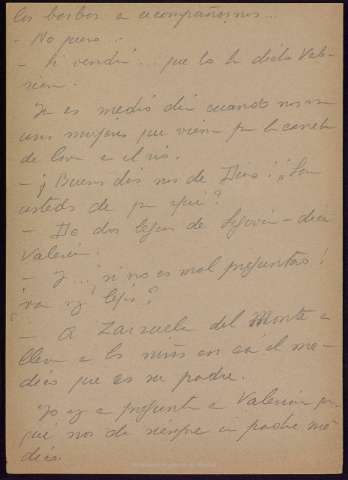 los bobos a acompañarnos...
- No quero.
- Si vendrá... que lo ha dicho Vale-
rian.
Ya es medio dia cuando nos
unas mujeres que vienen por la carret
de a el rio.
- ¡Buenos dias nos de Dios! ¿Son
ustedes de por aqui?
- De dos leguas de Segovia - dice
Valerián.
- Y... ¡si no es mal preguntar!
¿van uds lejos?
- A Zarzuela del Monte a
llevar a los niños en cá el me-
dico que es su padre.
Yo oy a pregunt a Valerián por
qué nos da siempre un padre mé-
dico.